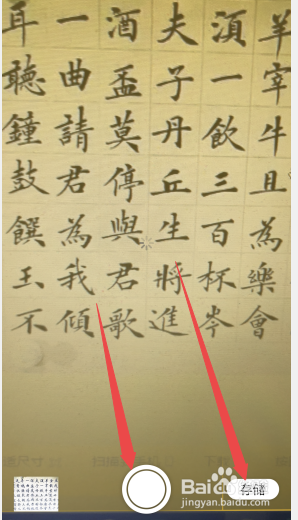 羊宰牛且為樂會
湏一飲三百杯岑
夫子丹丘生將進
酒盃莫停與君歌
一曲請君為我傾
耳聽鐘鼓饌玉不
存储
Baidu经验
jingyan.baidu.com